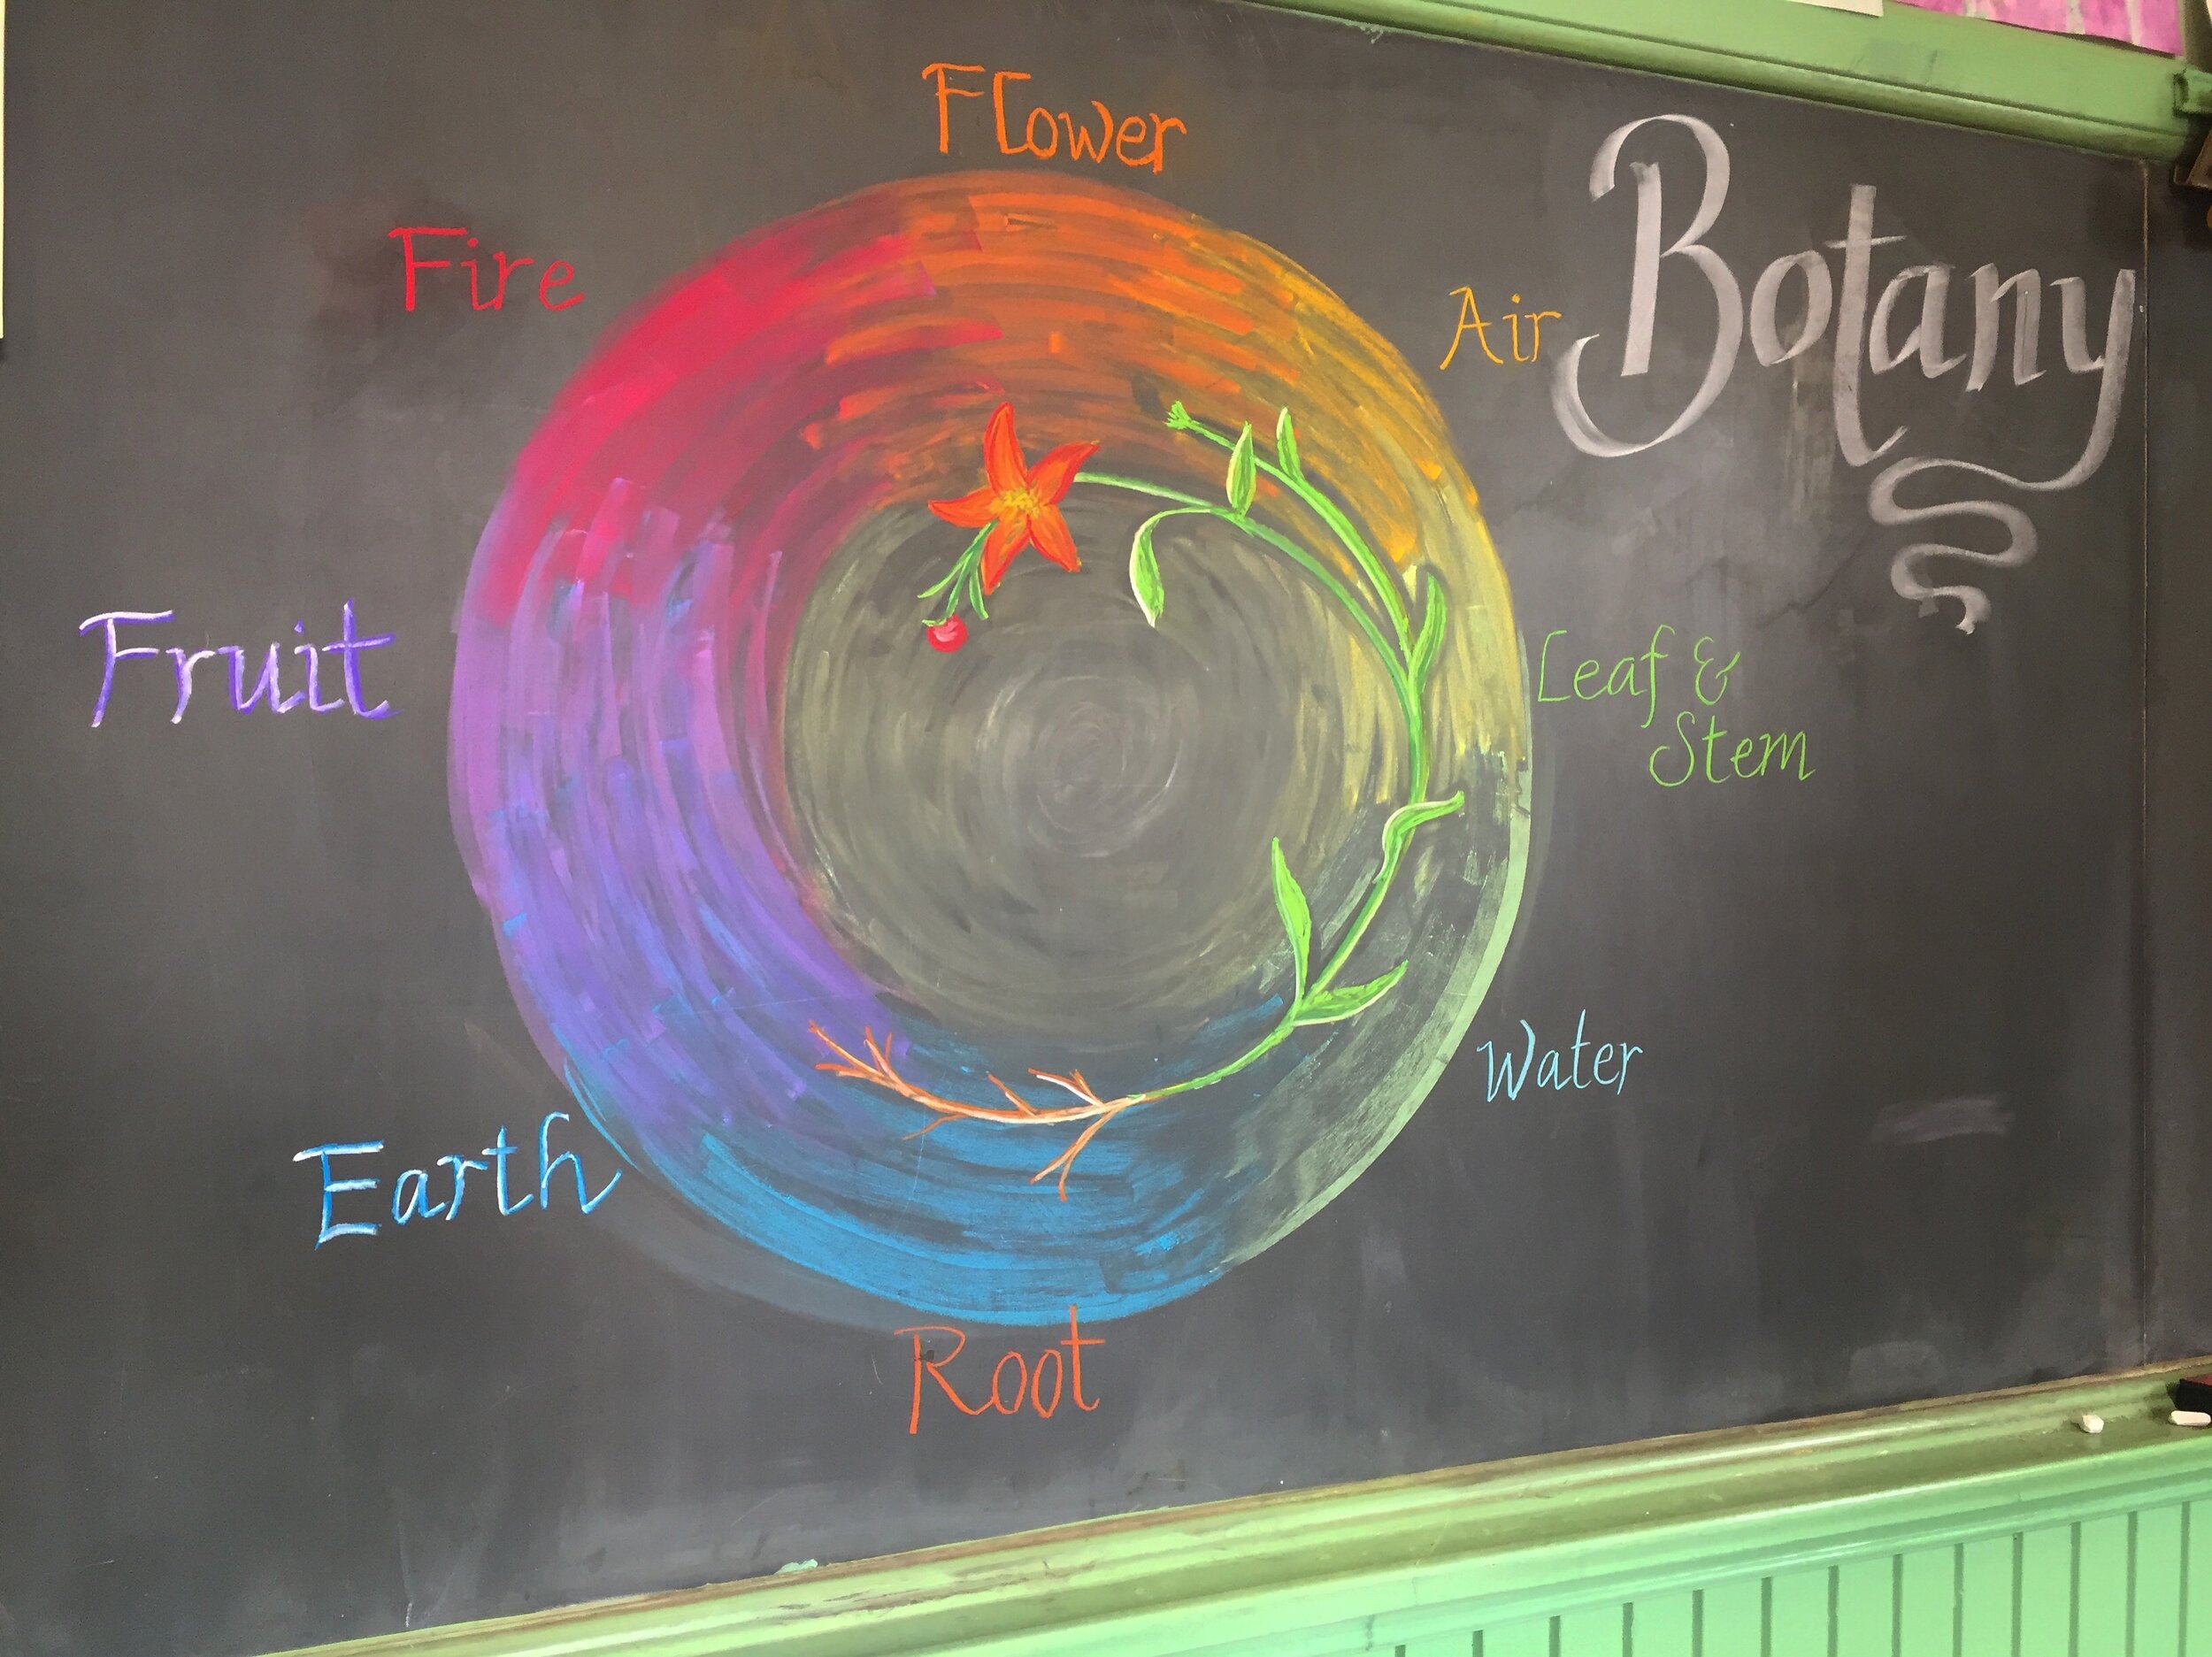 Botany
Flower
Air
Leaf &
Stem
Water
Root
Earth
Fruit
Fire